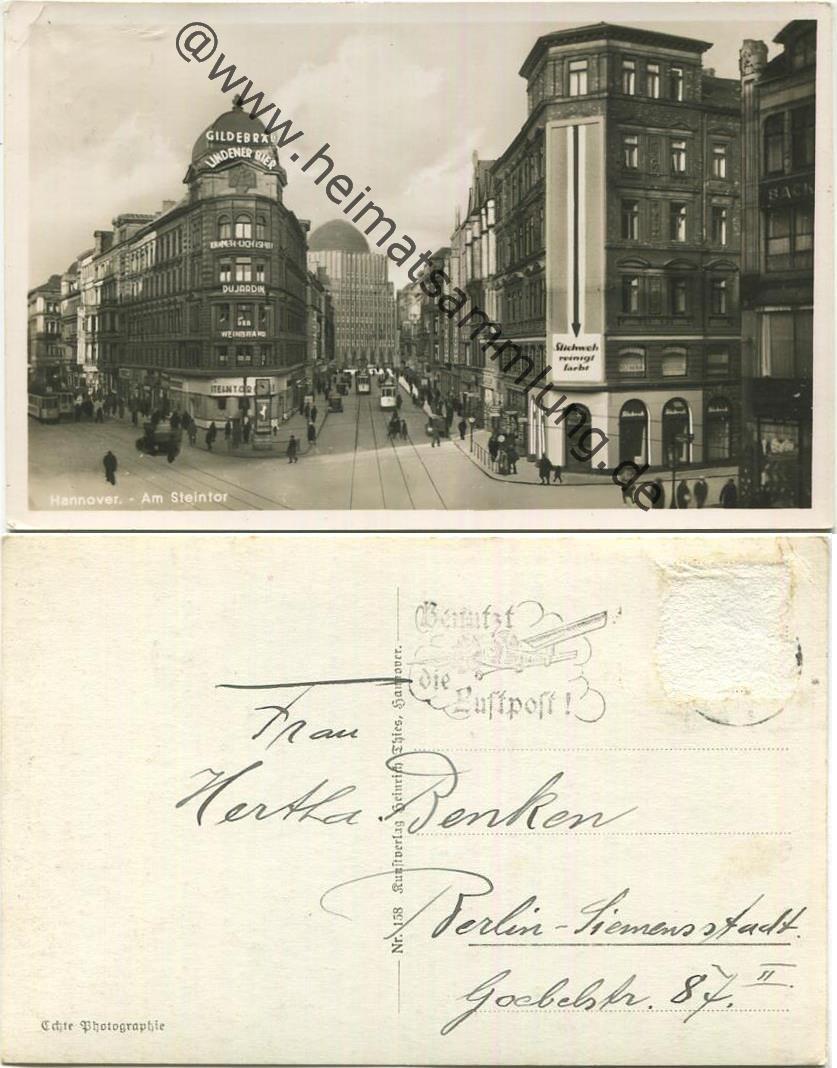 @www.heimatsammlung.de
GILDEBRÄU
LINDENER BIER
DUJARDIN
DER
WEINBRAND
STEINTOR
Stichweh
reinigt
färbt
BACK
Hannover. - Am Steintor
Benutzt
die
Luftpost!
Frau
Hertha Benken
Berlin-Siemensstadt.
Goebelstr. 87. II.
Nr. 158 Kunstverlag Heinrich Thies, Hannover.
Echte Photographie